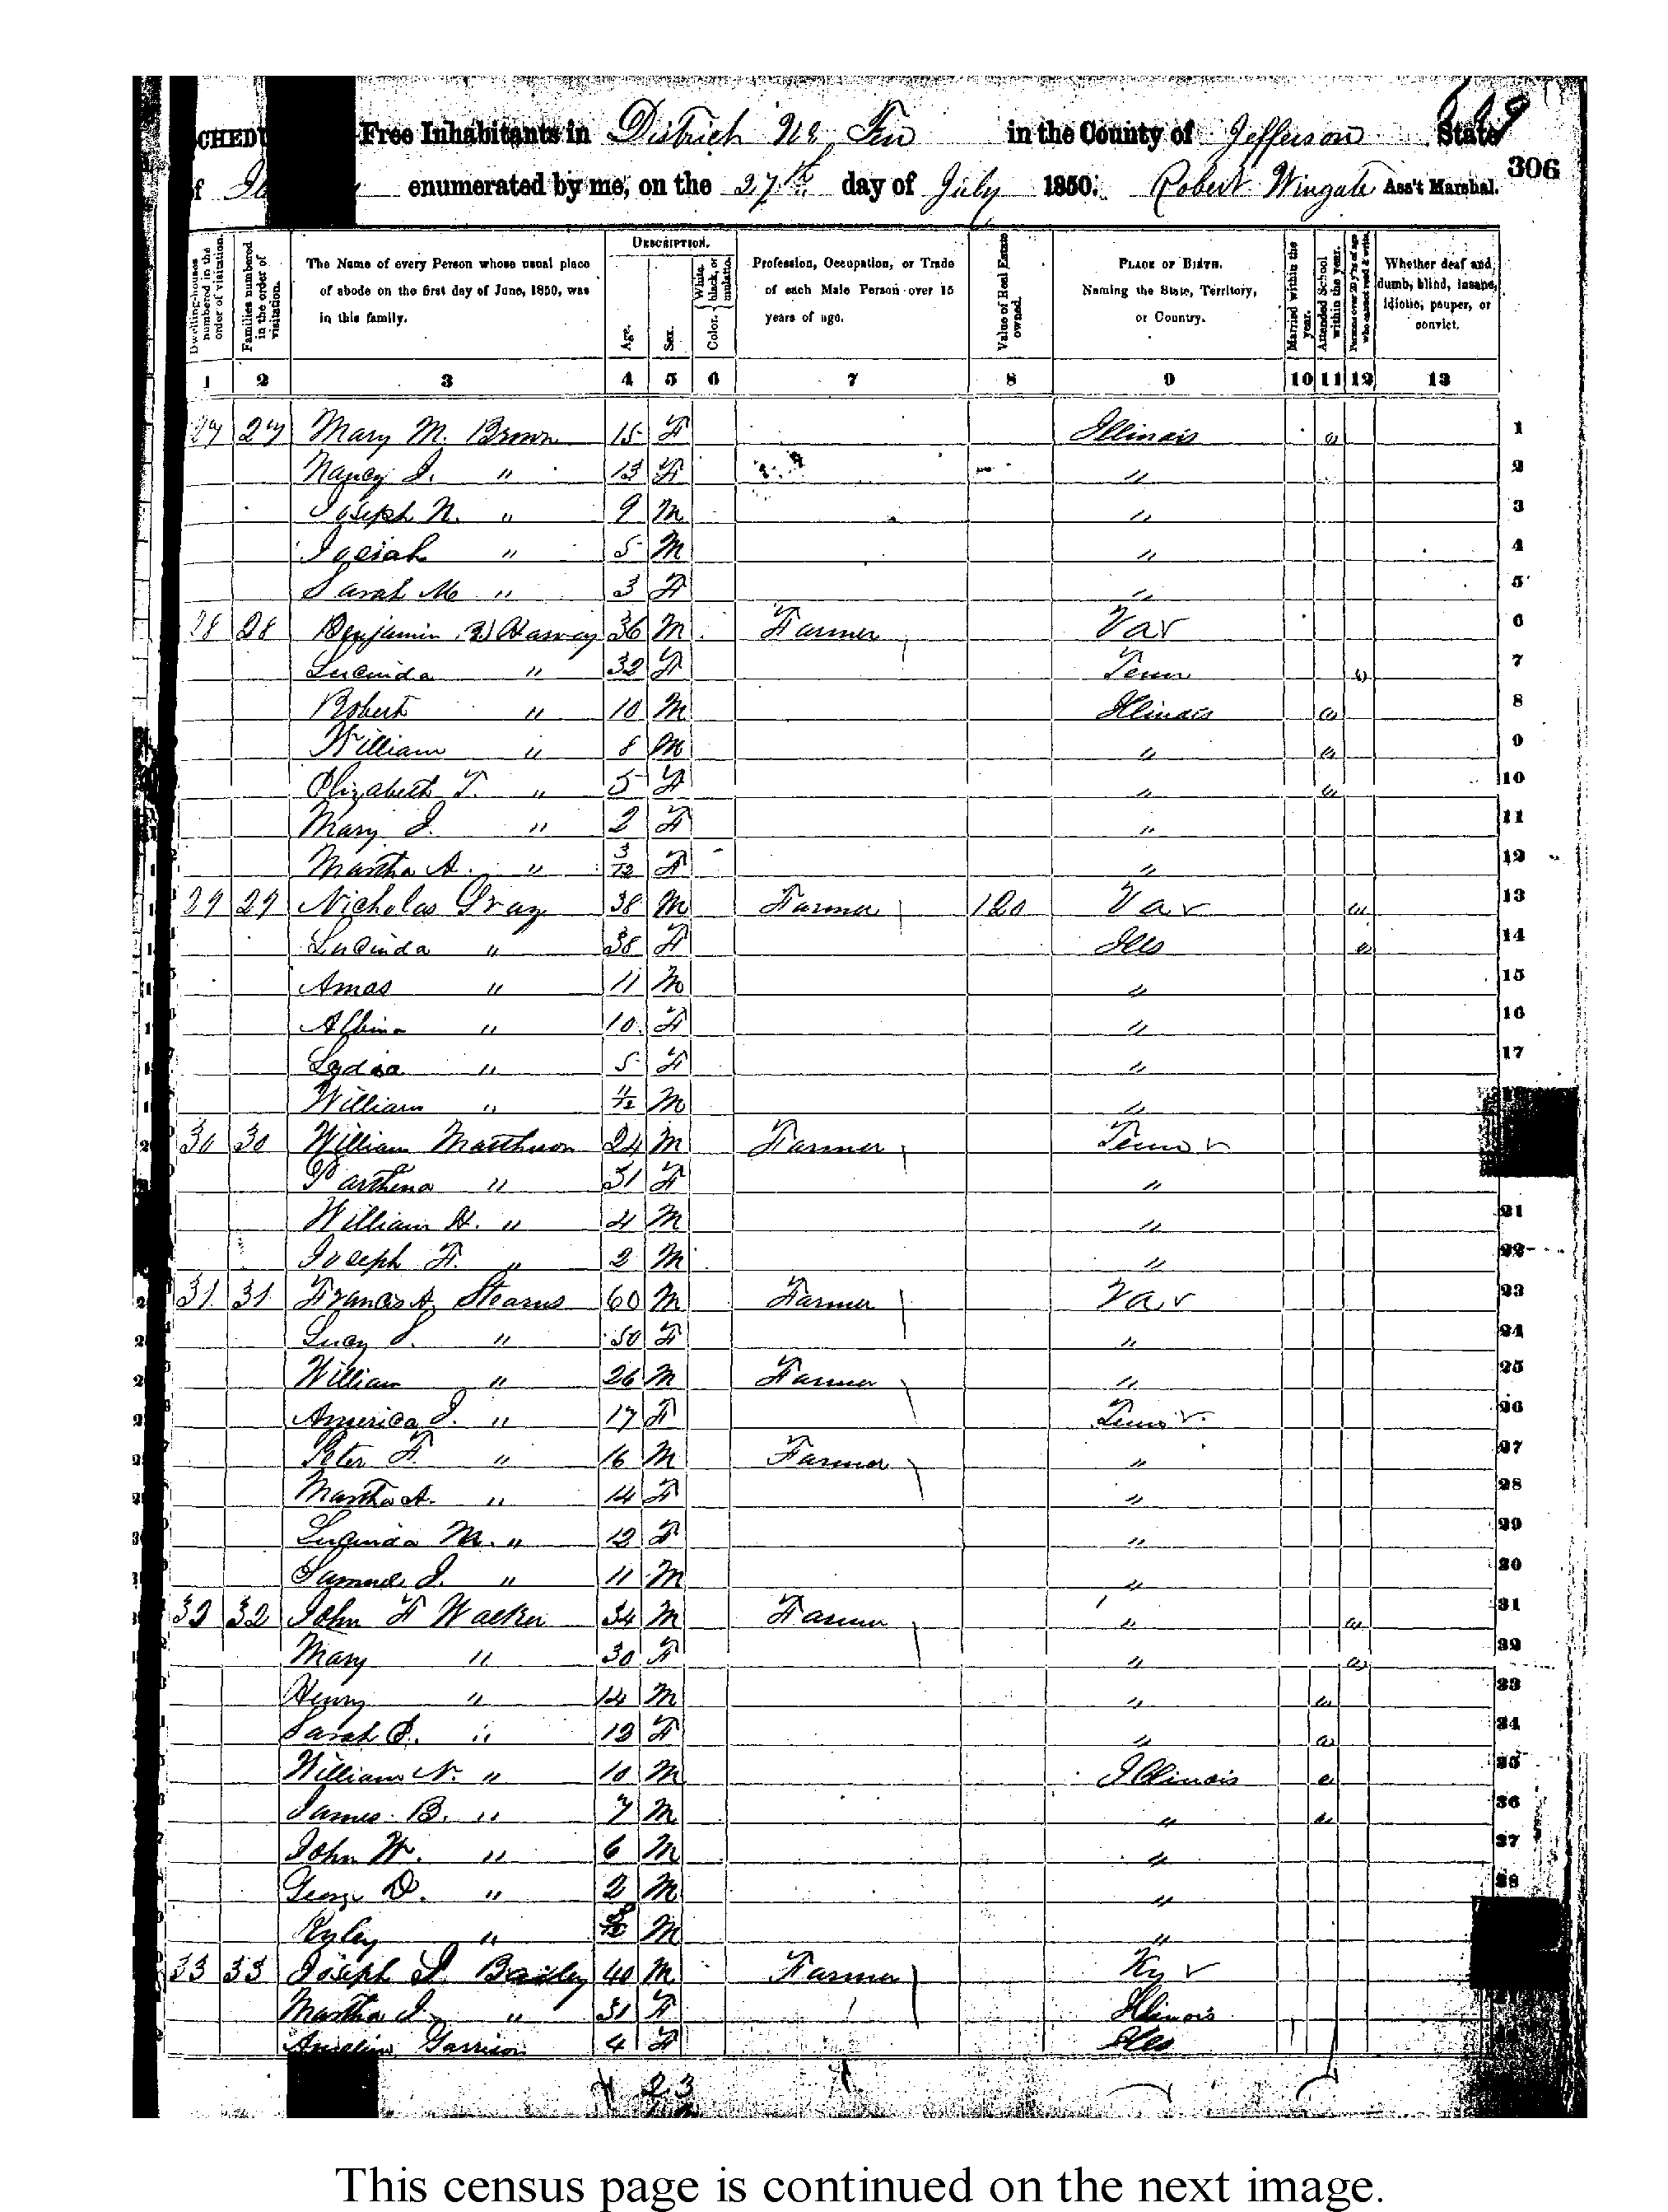 SCHEDU Free Inhabitants in District No Ten in the County of Jefferson State
306
of enumerated by me, on the 27th day of July 1850. Robert Wingate Ass't Marshal.
Dwelling-houses numbered in the order of visitation.
Families numbered in the order of visitation.
The Name of every Person whose usual place of abode on the first day of June, 1850, was in this family.
DESCRIPTION.
Age.
Sex.
Color. { White, black, or mulatto.
Profession, Occupation, or Trade of each Male Person over 15 years of age.
Value of Real Estate owned.
PLACE OF BIRTH. Naming the State, Territory, or Country.
Married within the year.
Attended School within the year.
Persons over 20 y'rs of age who cannot read & write.
Whether deaf and dumb, blind, insane, idiotic, pauper, or convict.
1 2 3 4 5 6 7 8 9 10 11 12 13
27 27 Mary M. Brown 15 F Illinois 1
Nancy J. " 13 F " 2
Joseph N. " 9 M " 3
Josiah " 5 M " 4
Sarah M " 3 F " 5
28 28 Benjamin Harvey 36 M Farmer Va 6
Lucinda " 32 F Tenn 7
Robert " 10 M Illinois 8
William " 8 M " 9
Elizabeth T. " 5 F " 10
Mary J. " 2 F " 11
Martha A. " 3/12 F " 12
29 29 Nicholas Gray 38 M Farmer 120 Va 13
Lucinda " 38 F Ills 14
Amos " 11 M " 15
Albina " 10 F " 16
Lydia " 5 F " 17
William " 11/12 M "
30 30 William Matthewson 24 M Farmer Tenn
Parthena " 31 F "
William H. " 4 M " 21
Joseph F. " 2 M " 22
31 31 Francis A. Stearns 60 M Farmer Va 23
Lucy " 50 F " 24
William " 26 M Farmer " 25
America J. " 17 F Tenn 26
Peter F. " 16 M Farmer " 27
Martha A. " 14 F " 28
Lucinda M. " 12 F " 29
Samuel J. " 11 M " 30
32 32 John F Walker 34 M Farmer " 31
Mary " 30 F " 32
Henry " 14 M " 33
Sarah " 12 F " 34
William N. " 10 M Illinois 35
James B. " 7 M " 36
John W. " 6 M " 37
George D. " 2 M " 38
Ryley " M "
33 33 Joseph Bailey 40 M Farmer Ky
Martha J. " 31 F Illinois
Garrison 4 F Ills
23
This census page is continued on the next image.